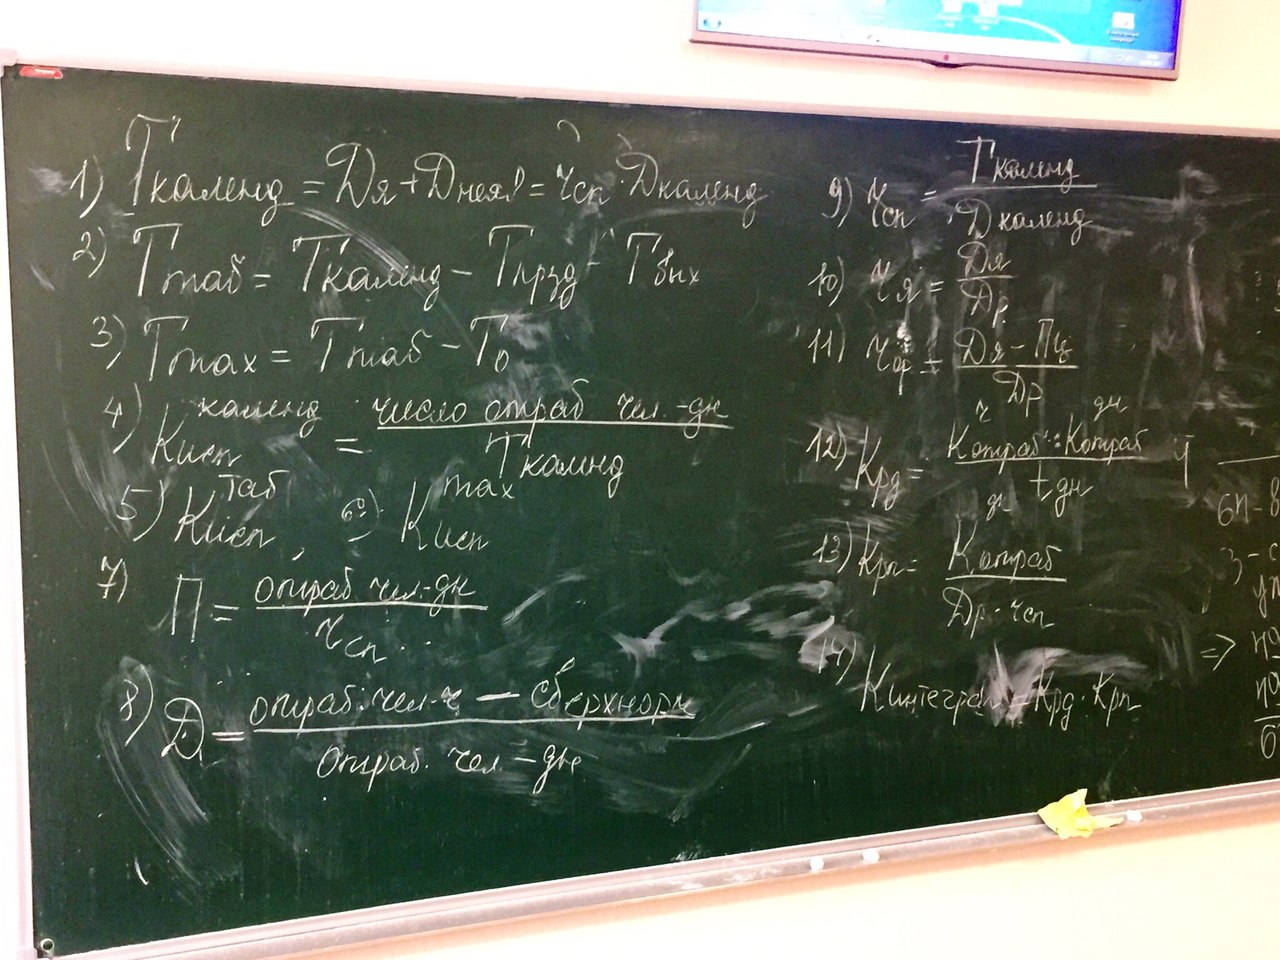 1) Ткаленд = Дя + Днея! = Чсп · Дкаленд
2) Ттаб = Ткаленд - Тпрзд - Твых
3) Тmax = Ттаб - То
4) Кисп календ = число отраб чел.-дн / Ткалнд
5) Кисп таб, 6) Кисп max
7) П = отраб чел.-дн / Чсп.
8) Д = отраб. чел.-ч - сверхнорм / отраб. чел. - дн
9) Чсп = Ткаленд / Дкаленд
10) Чя = Дя / Др
11) Чфр = Дя - Пц / Др
12) Крд = Котраб ч : Котраб дн / t дн
13) Крп = Котраб / Др · Чсп
14) Кинтеграл = Крд · Крп
6п - 8
3 - с
ут
=> но